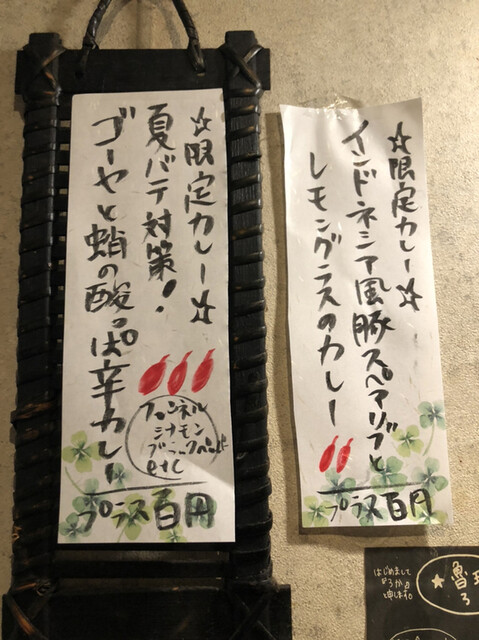 ☆限定カレー☆
インドネシア風豚スペアリブと
レモングラスのカレー
プラス百円
☆限定カレー☆
夏バテ対策!
ゴーヤと蛸の酸っぱ辛カレー
フェンネル
シナモン
ブラックペッパー
etc
プラス百円
はじめまして
"ろか"と
申します。
★魯
ろ